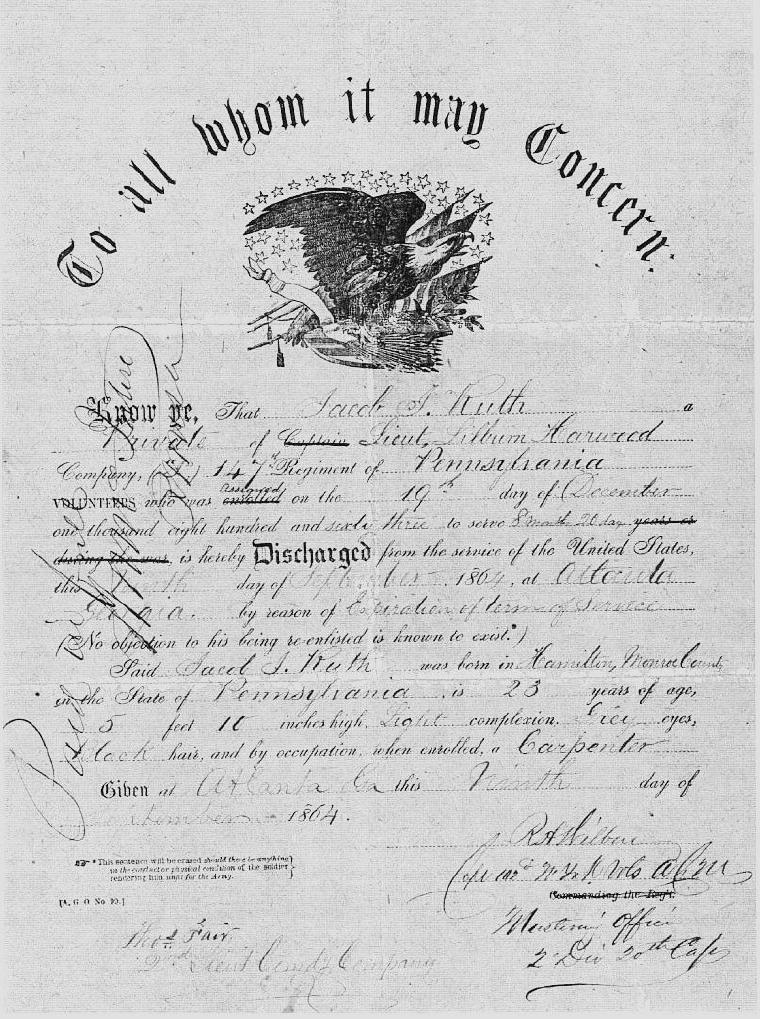 To all whom it may Concern:
Know ye, That Jacob S. Ruth a
Private of Captain Lieut, Lilburn Harwood
Company, 147 Regiment of Pennsylvania
VOLUNTEERS who was Assigned enrolled on the 19th day of December
one thousand eight hundred and sixty three to serve 8 month 20 day years or
during the war, is hereby Discharged from the service of the United States,
this Ninth day of September, 1864, at Atlanta
Georgia. by reason of Expiration of term of Service
(No objection to his being re-enlisted is known to exist.*)
Said Jacob S. Ruth was born in Hamilton, Monroe County
in the State of Pennsylvania is 23 years of age,
5 feet 10 inches high, Light complexion, Grey eyes,
Black hair, and by occupation, when enrolled, a Carpenter
Given at Atlanta Ga this Ninth day of
September 1864.
Paid in full
*This sentence will be erased should there be anything
in the conduct or physical condition of the soldier
rendering him unfit for the Army.
[A. G. O No 99.]
Thos. Fair
2nd Lieut Comd'g Company
R H Wilbur
Capt 102d N.Y. Vols
Commanding the Reg't.
Mustering Officer
2 Div 20th Corps